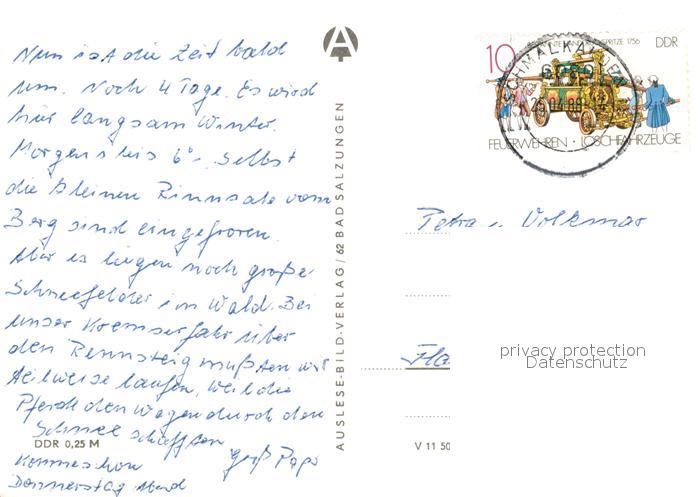 Nun ist die Zeit bald
um. Noch 4 Tage. Es wird
hier langsam Winter.
Morgens bis 6°-. Selbst
die kleinen Rinnsale vom
Berg sind eingefroren.
Aber es liegen noch große
Schneefelder im Wald. Bei
unser Kremserfahr über
den Rennsteig mußten wir
teilweise laufen, weil die
Pferde den Wagen durch den
Schnee schafften
Komme schon
Donnerstag Abend
Gruß Papa
DDR 0,25 M
AUSLESE-BILD-VERLAG / 62 BAD SALZUNGEN
10
SPRITZE 1756
DDR
SCHMALKALDEN
FEUERWEHREN · LÖSCHFAHRZEUGE
Petra u. Volkmar
privacy protection
Datenschutz
V 11 50